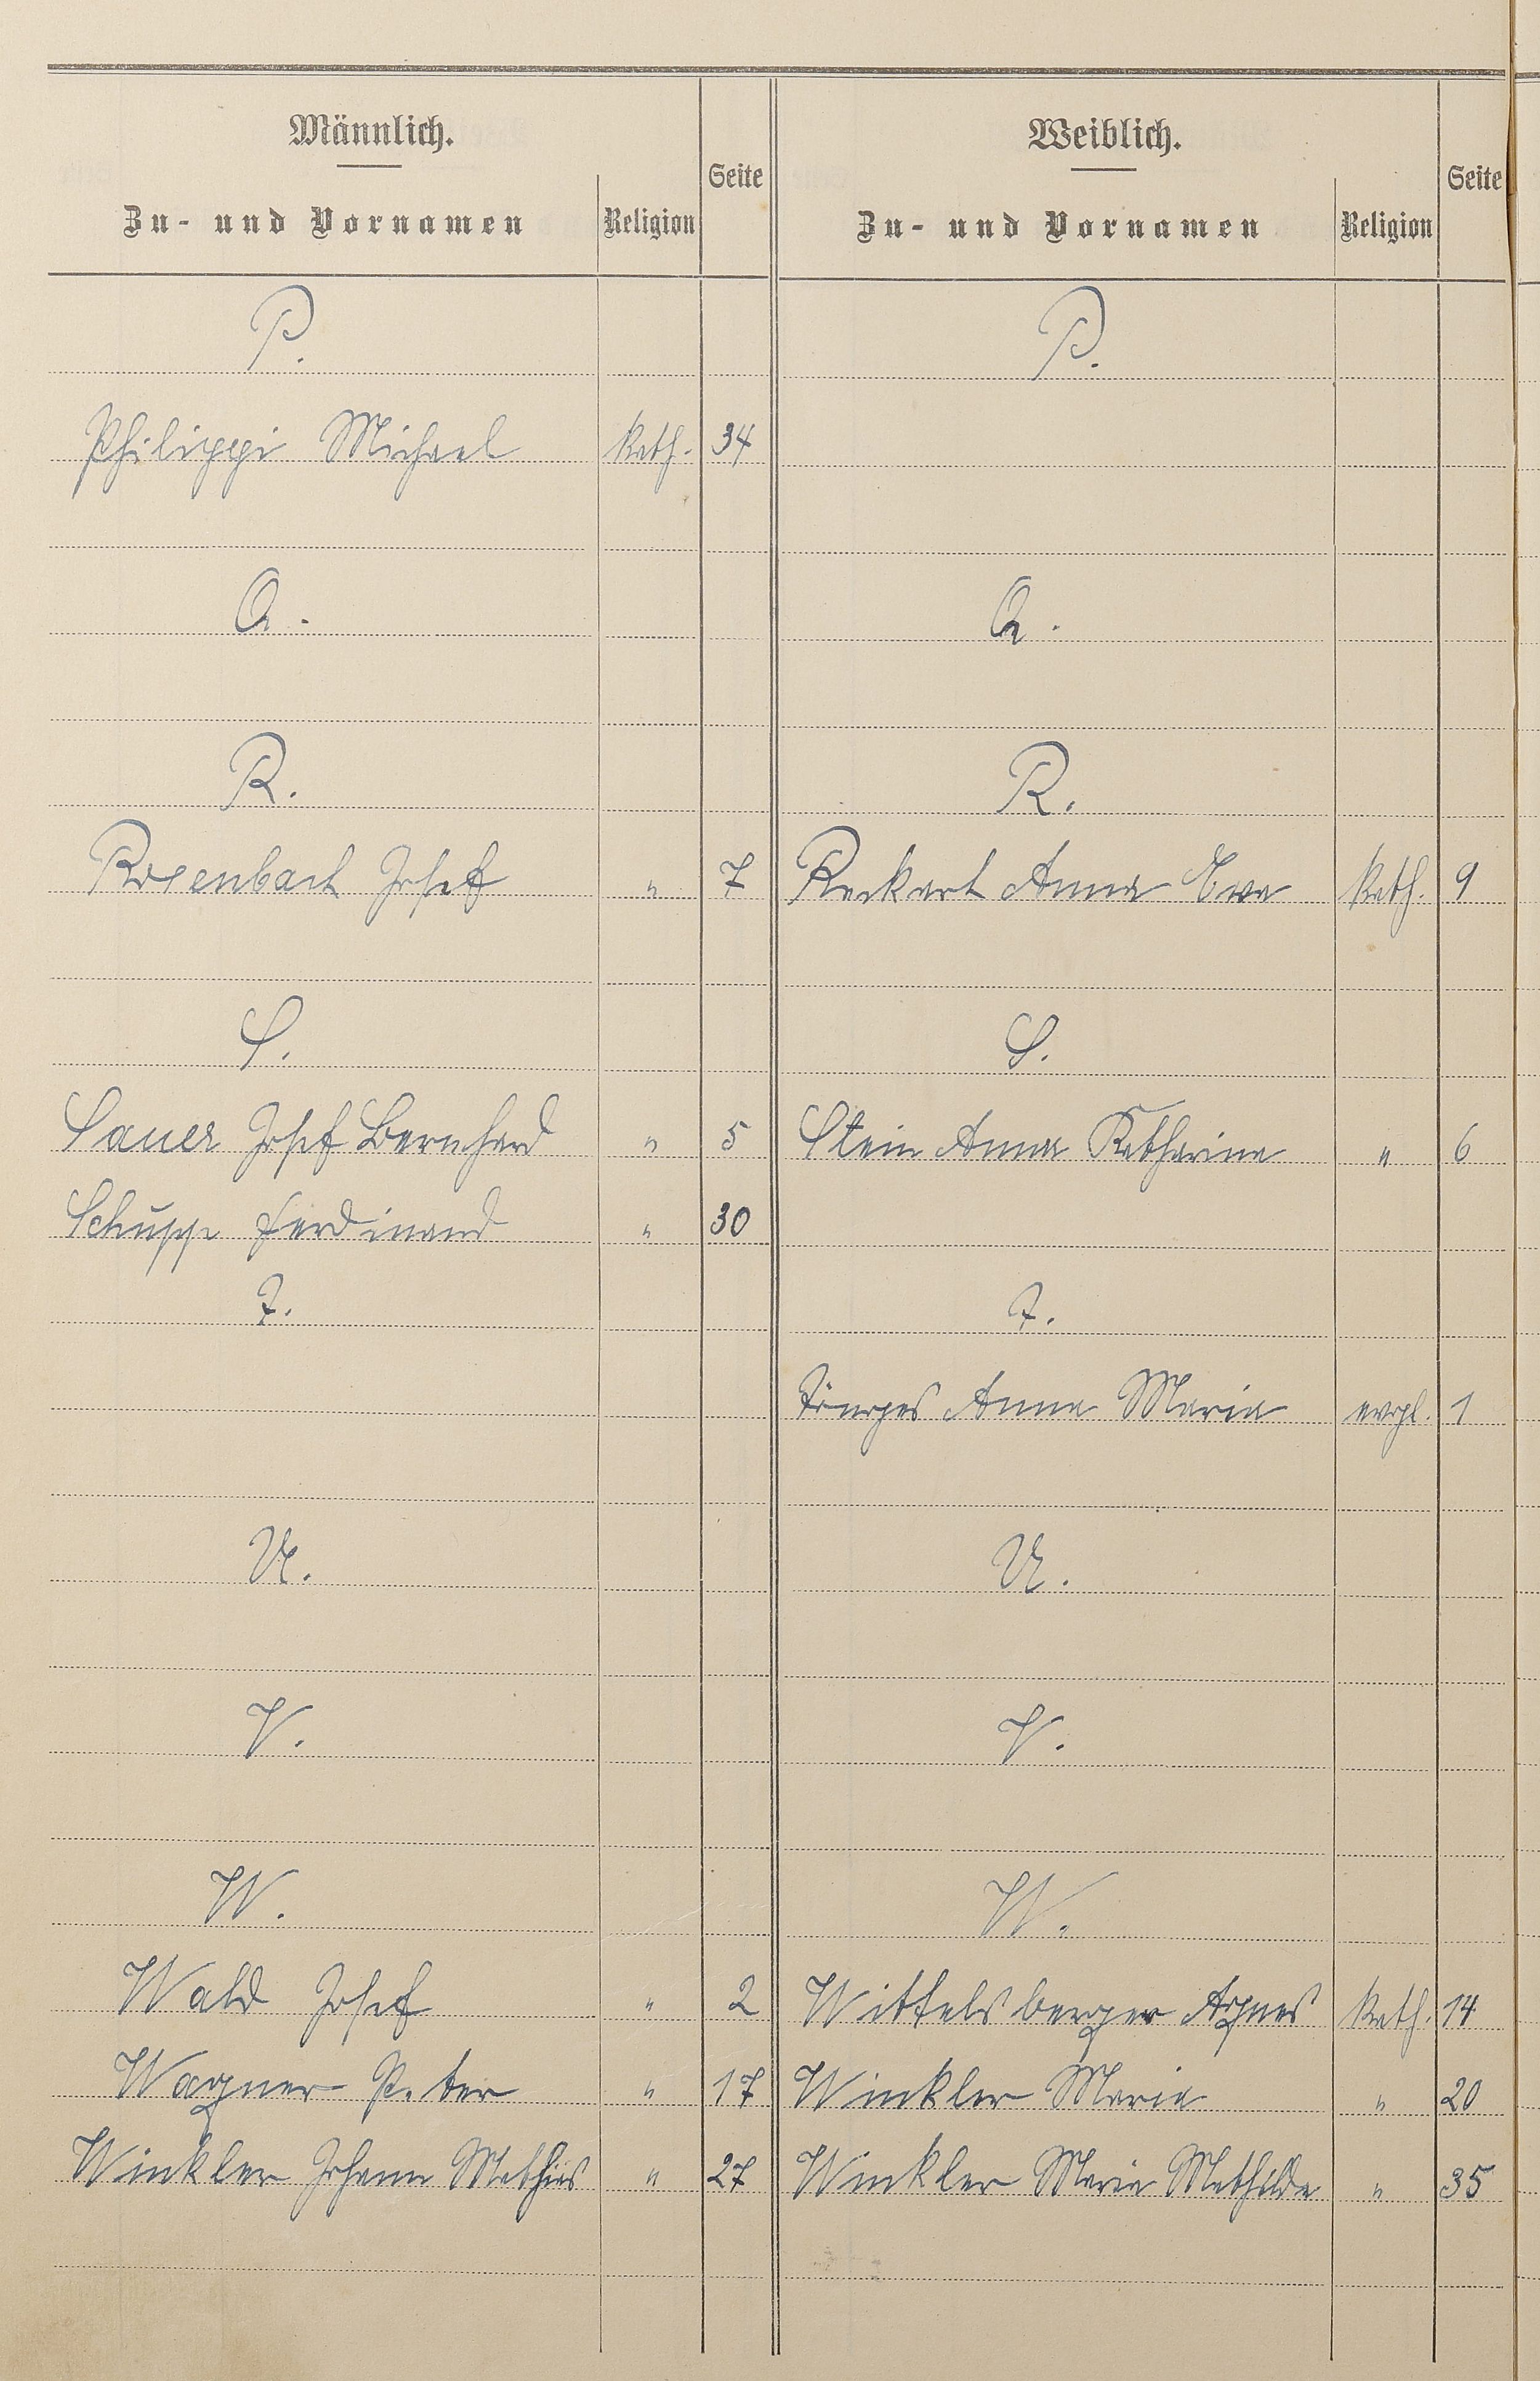 Männlich.
Zu- und Vornamen Religion Seite
P.
Philippi Michael Kath. 34
Q.
R.
Rosenbach Josef " 7
S.
Sauer Josef Bernhard " 5
Schupp Ferdinand " 30
T.
U.
V.
W.
Wald Josef " 2
Wagner Peter " 17
Winkler Johann Mathias " 27
Weiblich.
Zu- und Vornamen Religion Seite
P.
Q.
R.
Reckart Anna Eva Kath. 9
S.
Stein Anna Katharina " 6
T.
Tönges Anna Maria evgl. 1
U.
V.
W.
Wittelsberger Agnes Kath. 14
Winkler Maria " 20
Winkler Maria Mathilda " 35